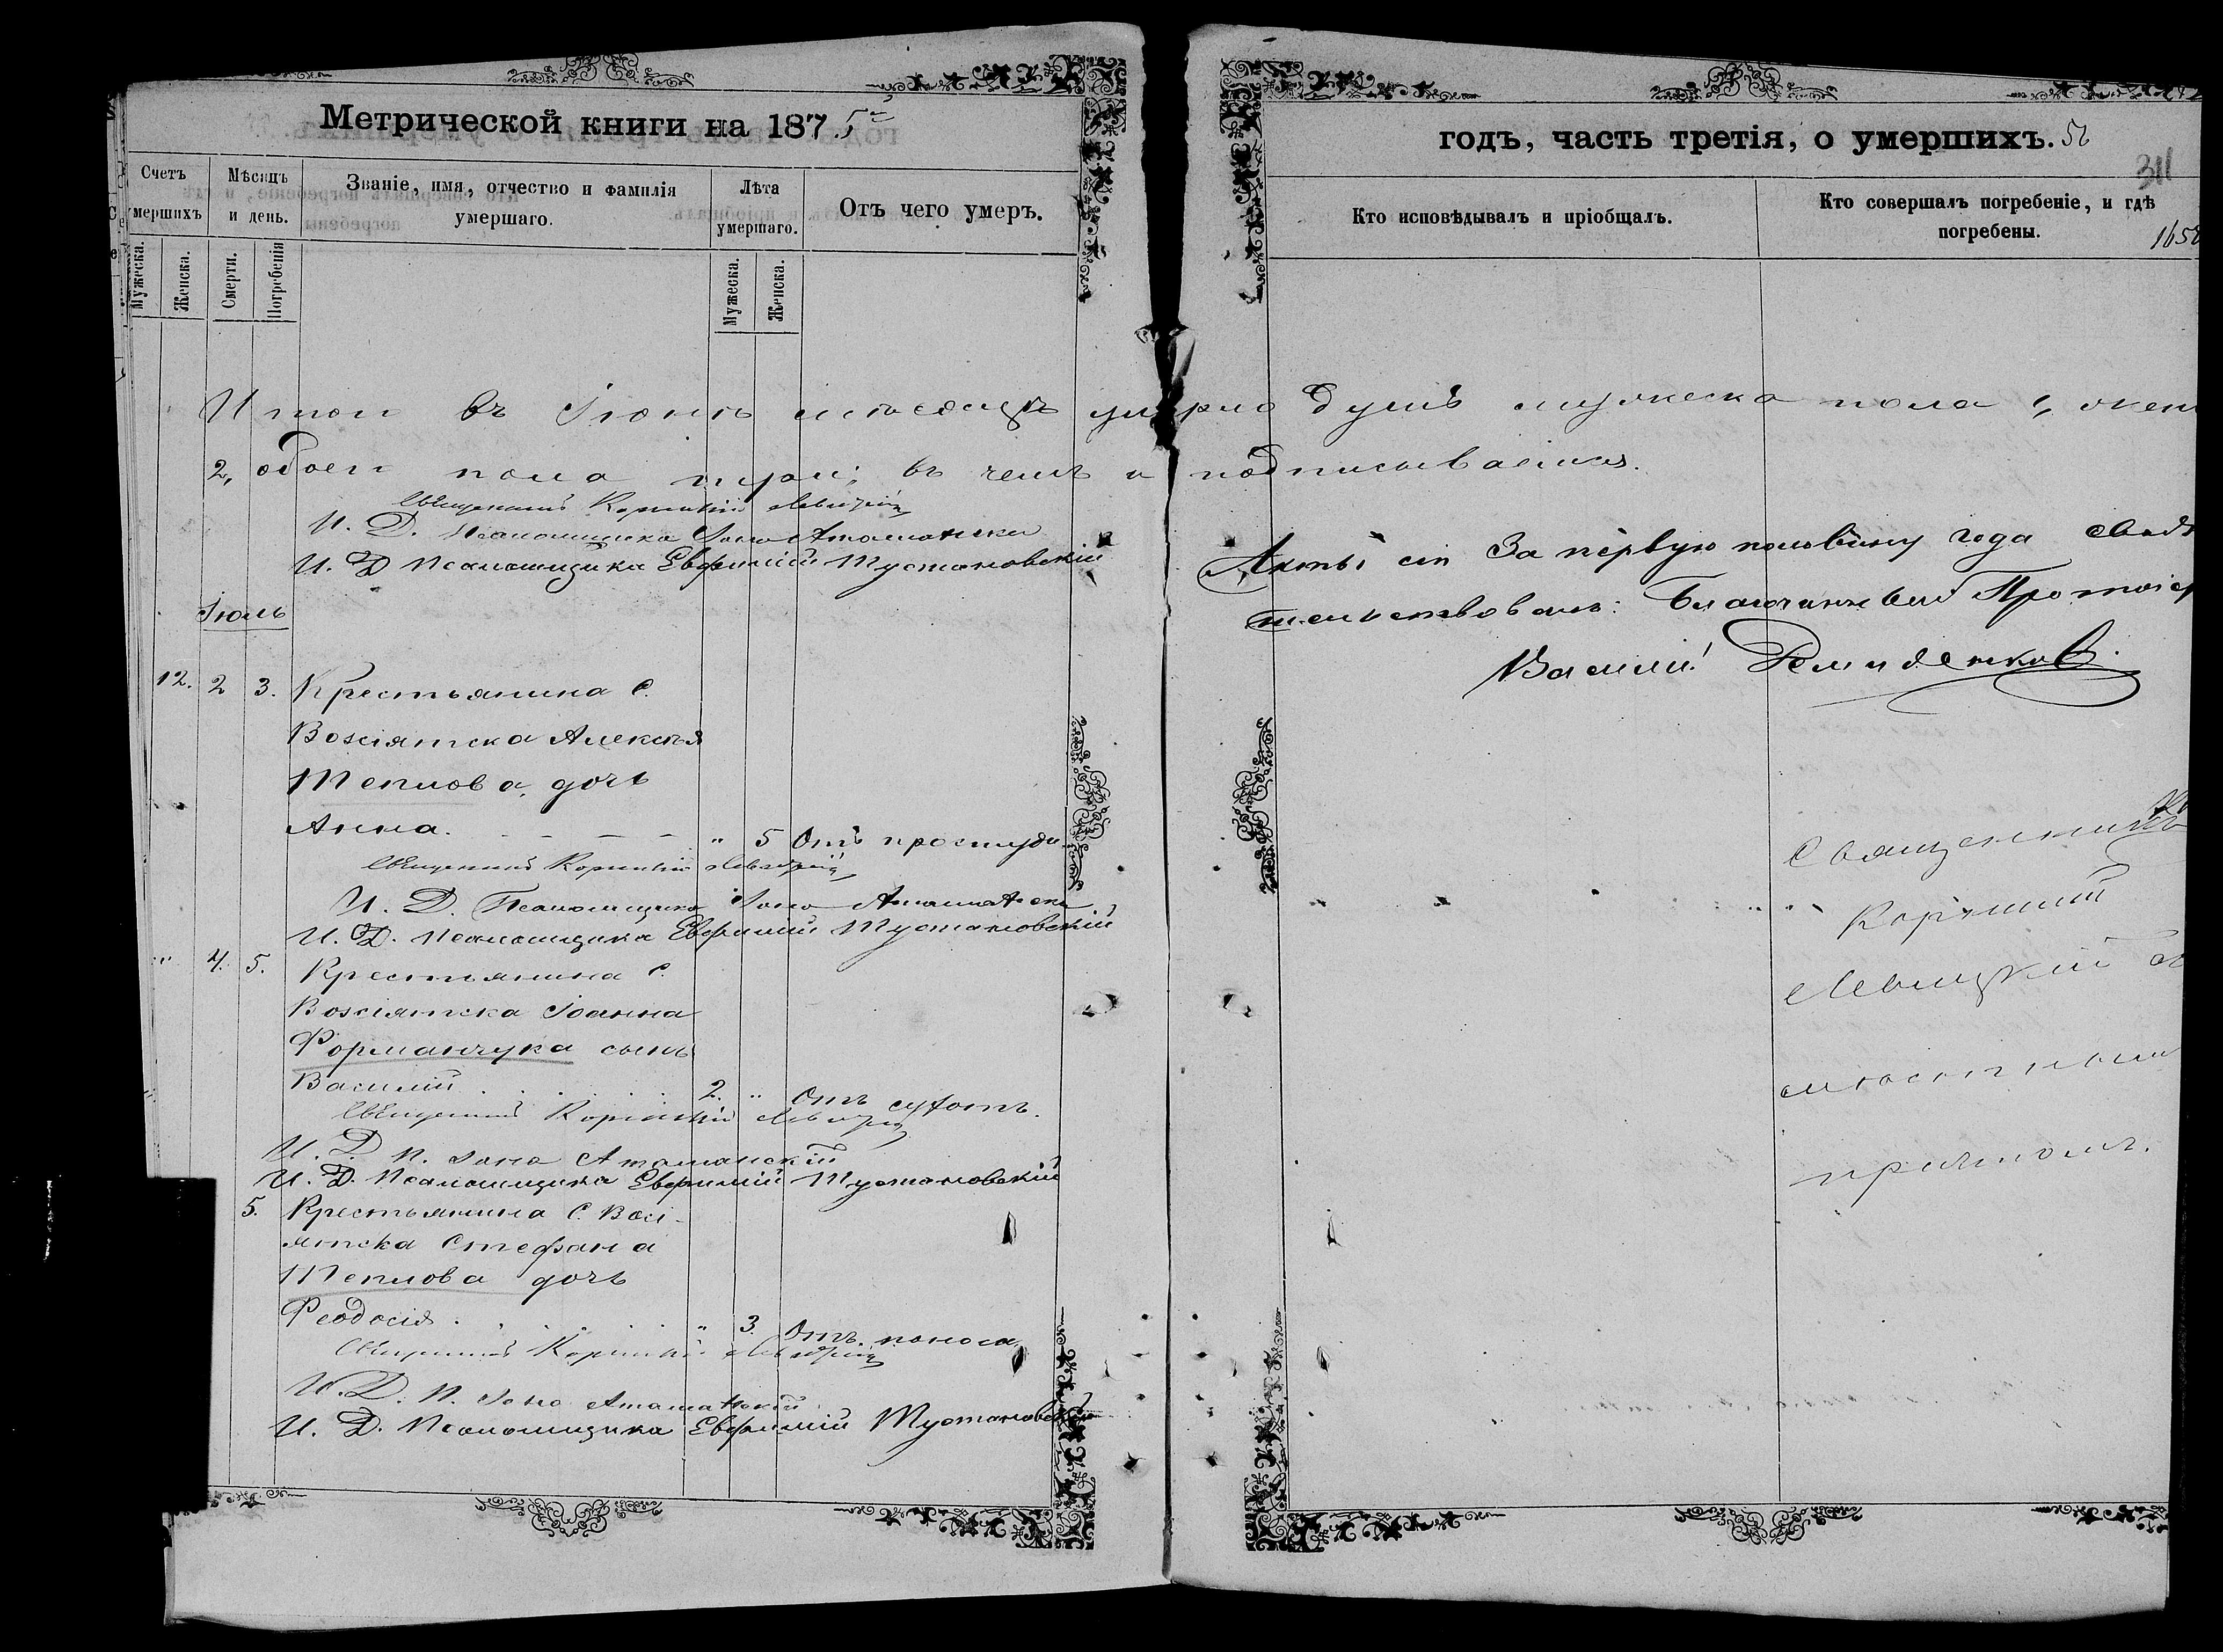 Метрической книги на 1875й
Счетъ умершихъ
Мѣсяцъ и день.
Званіе, имя, отчество и фамилія умершаго.
Лѣта умершаго.
Отъ чего умеръ.
Мужеска.
Женска.
Смерти.
Погребенія
Мужеска.
Женска.
годъ, часть третія, о умершихъ.
311
Кто исповѣдывалъ и пріобщалъ.
Кто совершалъ погребеніе, и гдѣ погребены.
Итого въ Іюнѣ мѣсяцѣ умерло душъ мужеска пола 1, жен
2, обоего пола три; въ чемъ и подписываемся.
Священникъ Корнилій Левицкій
И. Д. Псаломщика Іона Атамански
И. Д. Псаломщика Евфимій Тустановскій
Акты сіи за первую половину года свидѣ
тельствовалъ: Благочинный Протоіер
Василій
Іюль
12. 2 3. Крестьянина С.
Возсіятска Алексѣя
Теплова, дочь
Анна. " 5 Отъ простуды
Священникъ Корнилій Левицкій
И. Д. Псаломщика Іона Атамански
И. Д. Псаломщика Евфимій Тустановскій
" 4. 5. Крестьянина С.
Возсіятска Іоанна
Форманчука сынъ
Василій 2. " Отъ сухотъ.
Священникъ Корнилій Левицкій
И. Д. П. Іона Атаманскій
И. Д. Псаломщика Евфимій Тустановскій
5. Крестьянина С. Возсі-
ятска Стефана
Теплова дочь
Феодосія " 3. Отъ поноса
Священникъ Корнилій Левицкій
И. Д. П. Іона Атаманскій
И. Д. Псаломщика Евфимій Тустановскій
Священникъ
Корнилій
Левицкій съ
мѣстнымъ
причтомъ.